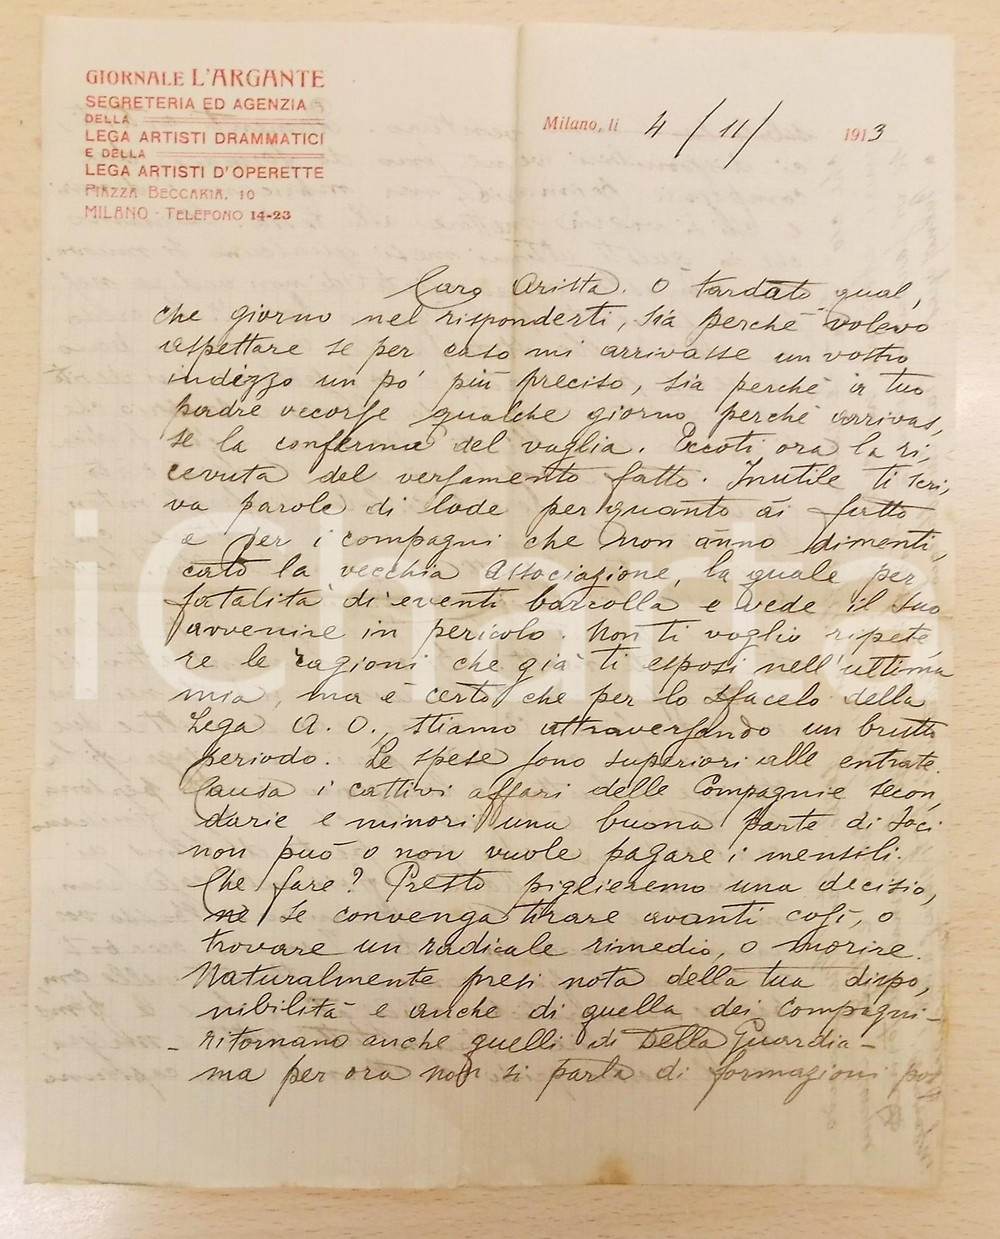 GIORNALE L'ARGANTE
SEGRETERIA ED AGENZIA
DELLA
LEGA ARTISTI DRAMMATICI
E DELLA
LEGA ARTISTI D'OPERETTE
PIAZZA BECCARIA, 10
MILANO - TELEFONO 14-23
Milano, li 4/11/ 1913
Caro Arista. O tardato qual,
che giorno nel risponderti, sia perchè volevo
aspettare se per caso mi arrivasse un vostro
indirizzo un pó più preciso, sia perchè a tuo
padre occorse qualche giorno perchè arrivas,
se la conferma del vaglia. Eccoti ora la ri,
cevuta del versamento fatto. Inutile ti scri,
va parole di lode per quanto ai fatto
e per i compagni che non ànno dimenti,
cato la vecchia Associazione, la quale per
fatalità di eventi barcolla e vede il suo
avvenire in pericolo. Non ti voglio ripete,
re le ragioni che già ti esposi nell'ultima
mia, ma è certo che per lo sfacelo della
Lega A. O., stiamo attraversando un brutto
periodo. Le spese sono superiori alle entrate.
Causa i cattivi affari delle Compagnie secon,
darie e minori una buona parte di soci
non può o non vuole pagare i mensili.
Che fare? Presto piglieremo una decisio,
ne se convenga tirare avanti così, o
trovare un radicale rimedio, o morire.
Naturalmente presi nota della tua dispo,
nibilità e anche di quella dei compagni -
- ritornano anche quelli di Della Guardia -
ma per ora non si parla di formazioni poi
iCharta